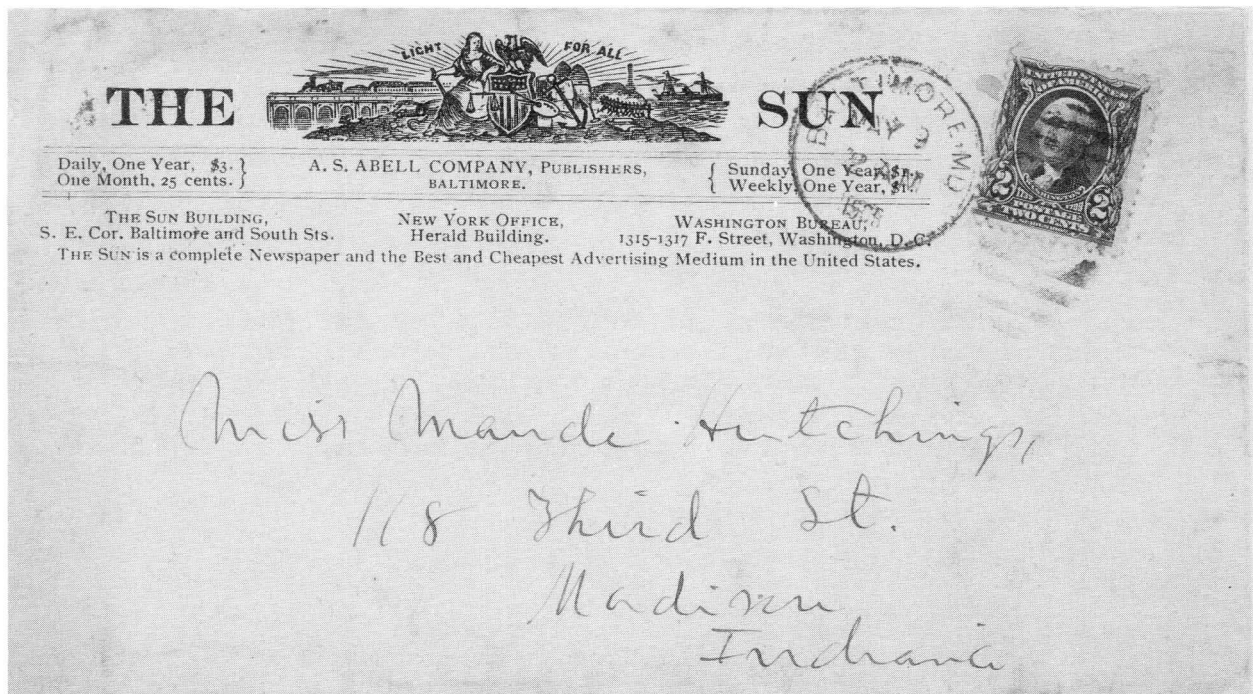 LIGHT FOR ALL
THE SUN
Daily, One Year, $3.
One Month, 25 cents.
A. S. ABELL COMPANY, PUBLISHERS,
BALTIMORE.
Sunday, One Year,
Weekly, One Year,
THE SUN BUILDING,
S. E. Cor. Baltimore and South Sts.
NEW YORK OFFICE,
Herald Building.
WASHINGTON BUREAU,
1315-1317 F. Street, Washington, D.C.
THE SUN is a complete Newspaper and the Best and Cheapest Advertising Medium in the United States.
BALTIMORE, MD
UNITED STATES
OF AMERICA
2 2
POSTAGE
TWO CENTS
Miss Maude Hutchings,
118 Third St.
Madison
Indiana